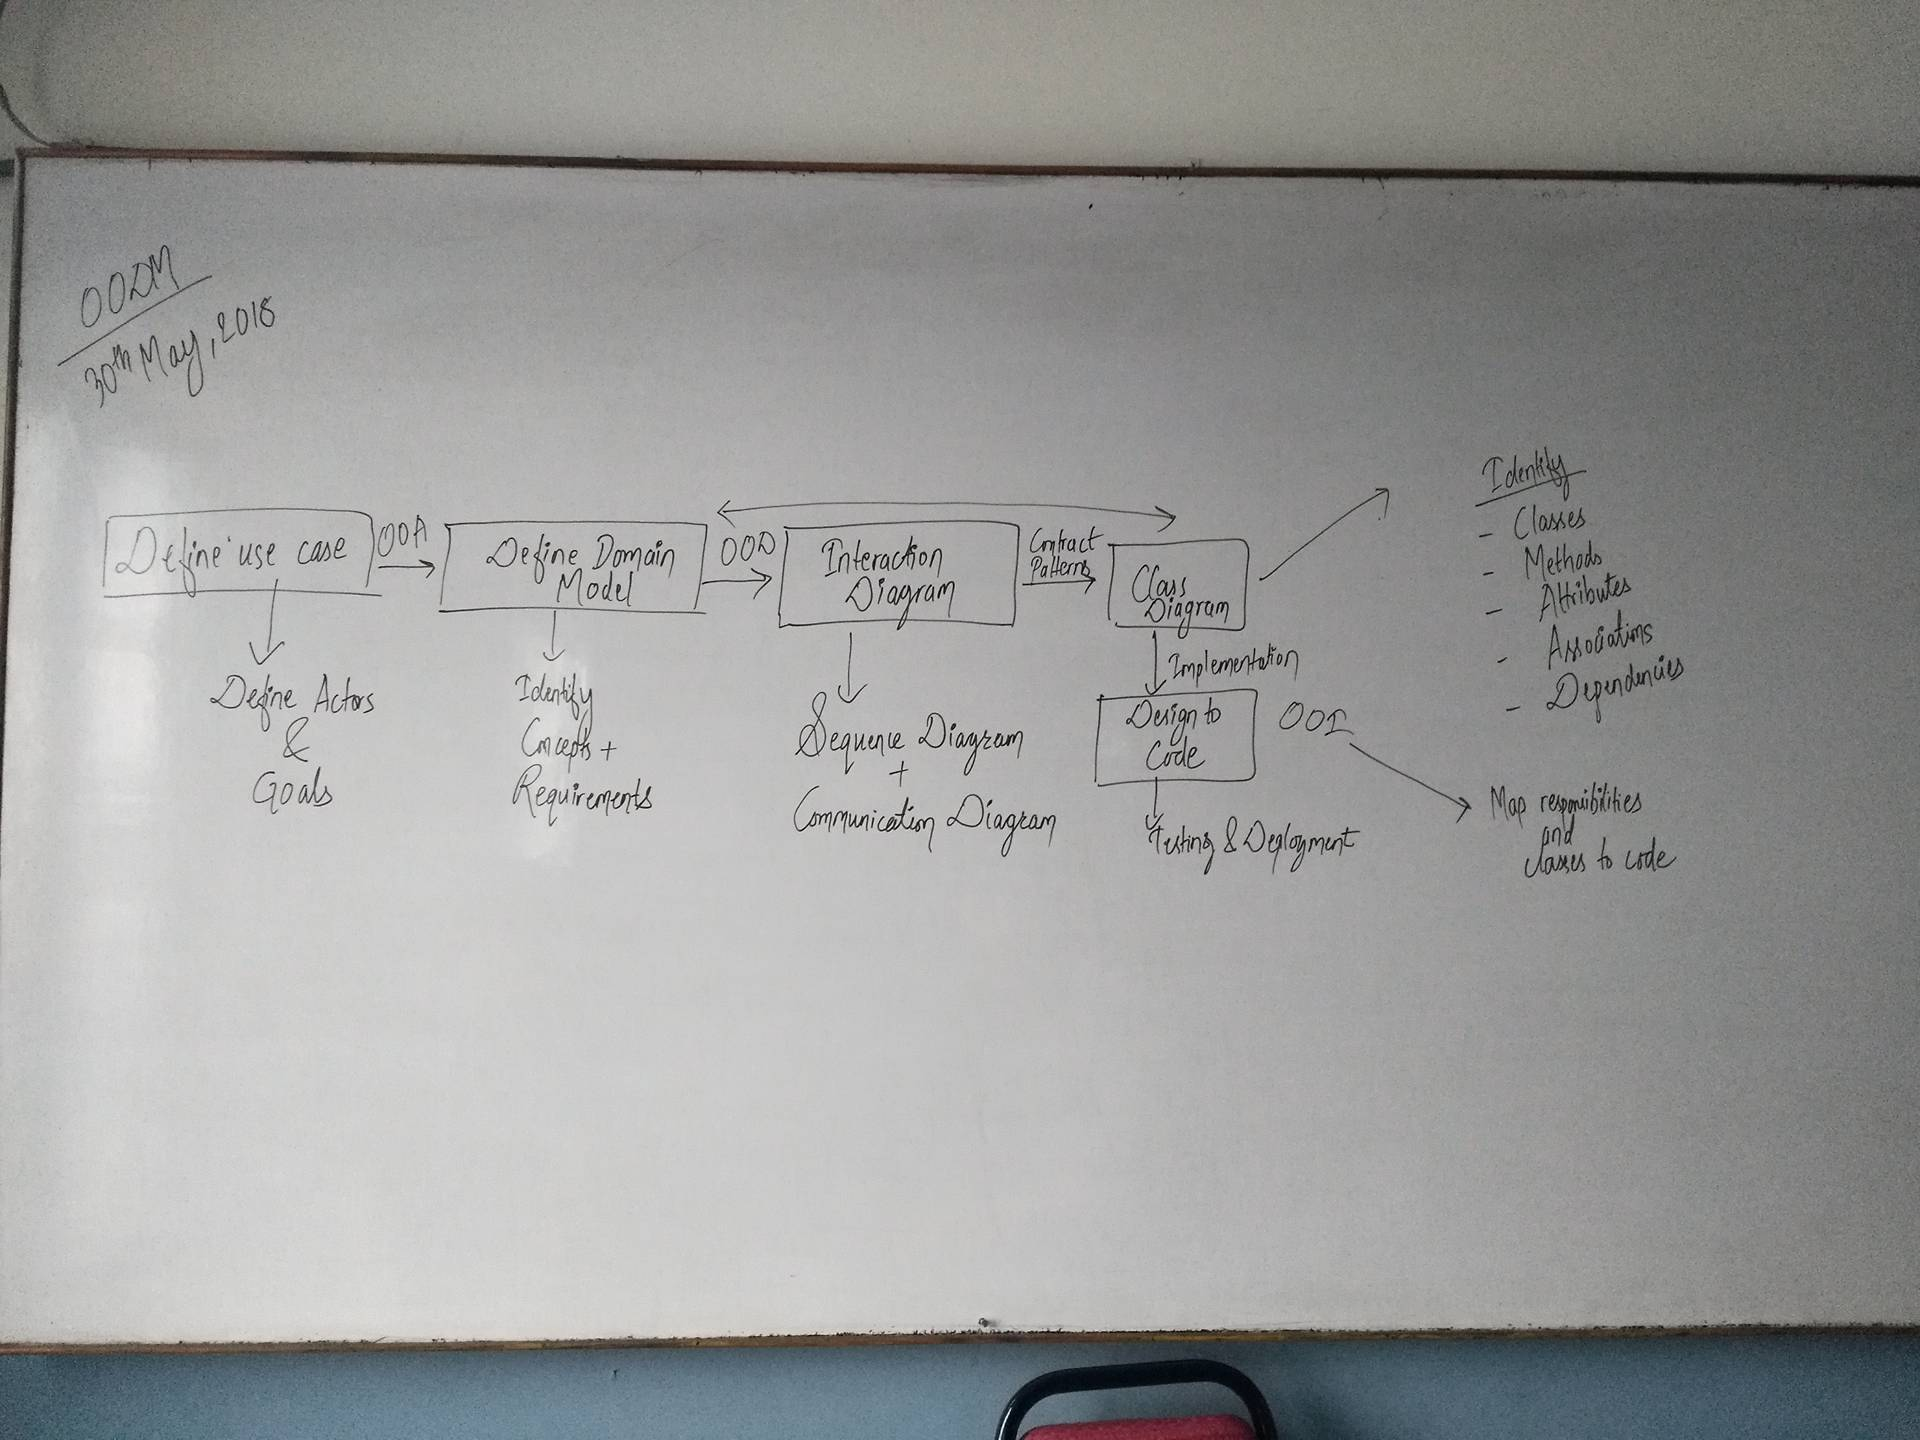 OODM
30th May, 2018
Define use case
OOA
Define Domain
Model
OOD
Interaction
Diagram
Contract
Patterns
Class
Diagram
Define Actors
&
Goals
Identify
Concepts +
Requirements
Sequence Diagram
+
Communication Diagram
Implementation
Design to
Code
OOI
Testing & Deployment
Identify
- Classes
- Methods
- Attributes
- Associations
- Dependencies
Map responsibilities
and
classes to code